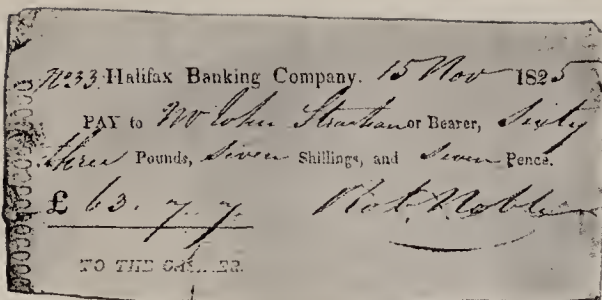 No 33. Halifax Banking Company. 15 Nov 1825
PAY to Mr John Strachan or Bearer, Sixty
three Pounds, Seven Shillings, and Seven Pence.
£ 63. 7. 7. Robt. Noble
TO THE